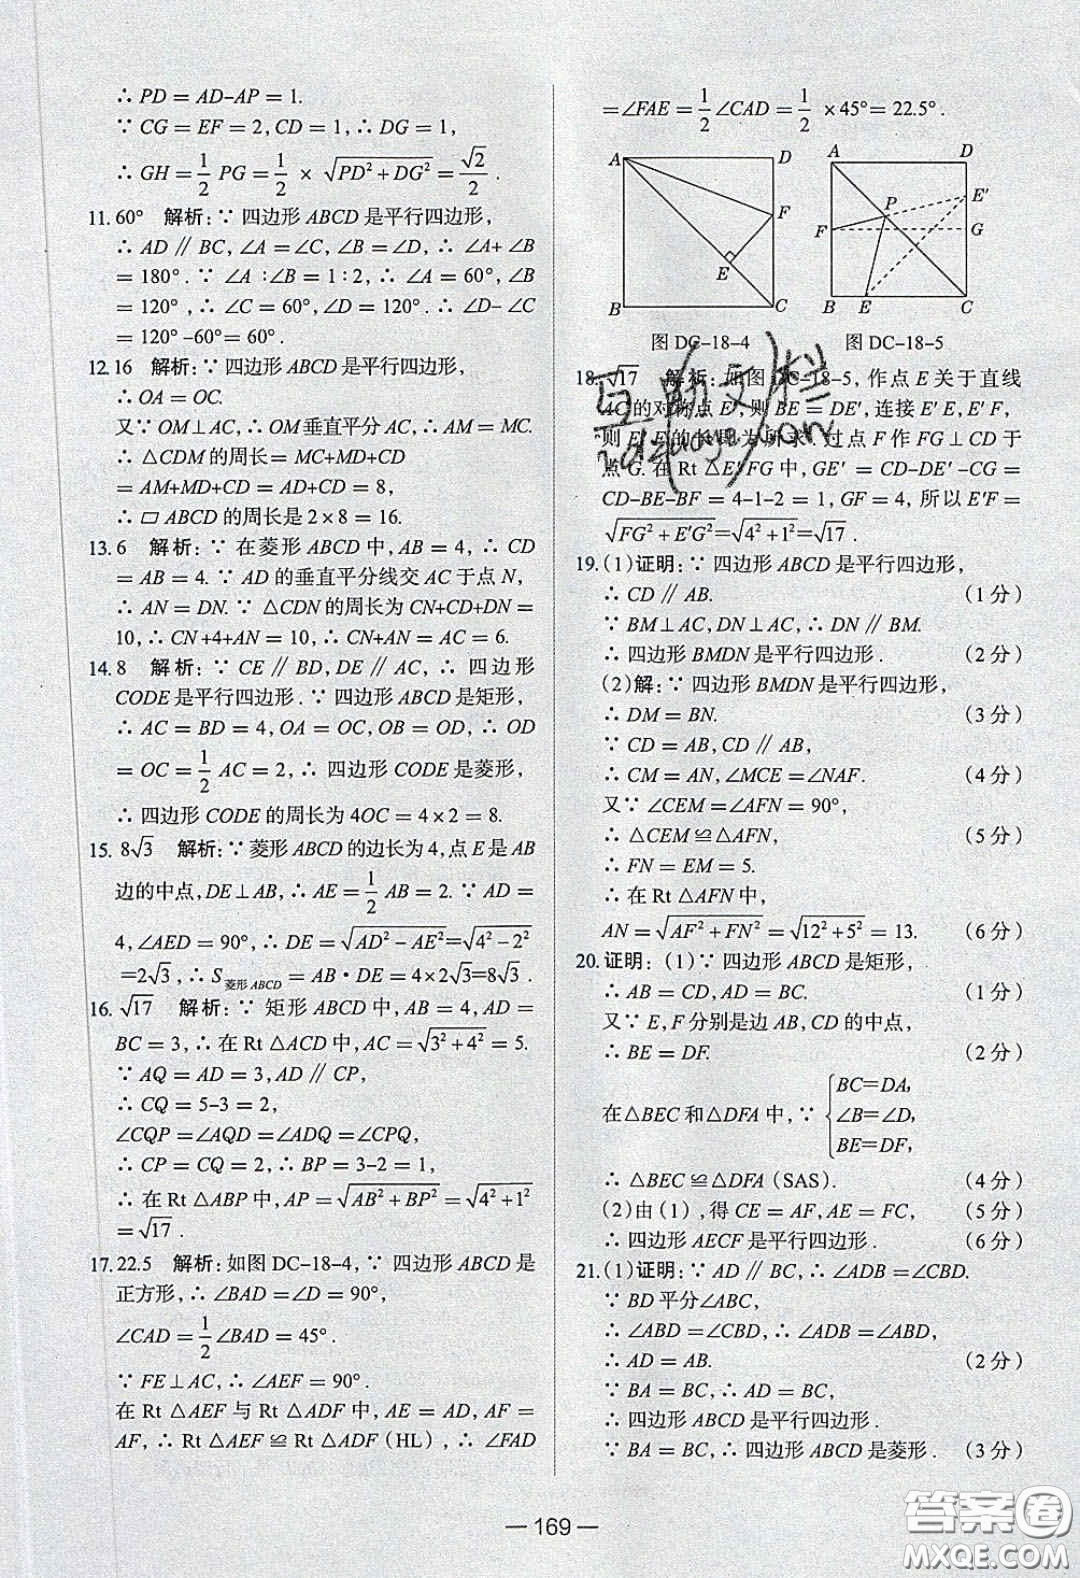 ∴ PD = AD-AP = 1.
∵ CG = EF = 2, CD = 1, ∴ DG = 1,
∴ GH = 1/2 PG = 1/2 × √(PD²+DG²) = √2/2 .
11. 60° 解析:∵ 四边形 ABCD 是平行四边形,
∴ AD ∥ BC, ∠A = ∠C, ∠B = ∠D, ∴ ∠A+ ∠B
= 180° . ∵ ∠A ∶∠B = 1∶2, ∴ ∠A = 60°, ∠B
= 120° , ∴ ∠C = 60°, ∠D = 120° . ∴ ∠D- ∠C
= 120° -60° = 60°.
12. 16 解析:∵ 四边形 ABCD 是平行四边形,
∴ OA = OC.
又∵ OM⊥AC, ∴ OM 垂直平分 AC, ∴ AM = MC.
∴ △CDM 的周长 = MC+MD+CD
= AM+MD+CD = AD+CD = 8,
∴ ▱ ABCD 的周长是 2×8 = 16.
13. 6 解析:∵ 在菱形 ABCD 中, AB = 4, ∴ CD
= AB = 4. ∵ AD 的垂直平分线交 AC 于点 N,
∴ AN = DN. ∵ △CDN 的周长为 CN+CD+DN =
10, ∴ CN +4+AN = 10, ∴ CN+AN = AC = 6.
14. 8 解析:∵ CE ∥ BD, DE ∥ AC, ∴ 四边形
CODE 是平行四边形 . ∵ 四边形 ABCD 是矩形,
∴ AC = BD = 4, OA = OC, OB = OD, ∴ OD
= OC = 1/2 AC = 2, ∴ 四边形 CODE 是菱形,
∴ 四边形 CODE 的周长为 4OC = 4×2 = 8.
15. 8√3 解析:∵ 菱形 ABCD 的边长为 4, 点 E 是 AB
边的中点, DE⊥AB, ∴ AE = 1/2 AB = 2. ∵ AD =
4, ∠AED = 90°, ∴ DE = √(AD²-AE²) = √(4²-2²)
= 2√3, ∴ S菱形ABCD = AB·DE = 4×2√3 = 8√3 .
16. √17 解析:∵ 矩形 ABCD 中, AB = 4, AD =
BC = 3, ∴ 在 Rt △ACD 中, AC = √(3²+4²) = 5.
∵ AQ = AD = 3, AD ∥ CP,
∴ CQ = 5-3 = 2,
∠CQP = ∠AQD = ∠ADQ = ∠CPQ,
∴ CP = CQ = 2, ∴ BP = 3-2 = 1,
∴ 在 Rt △ABP 中, AP = √(AB²+BP²) = √(4²+1²)
= √17 .
17. 22.5 解析:如图 DC-18-4, ∵ 四边形 ABCD 是
正方形, ∴ ∠BAD = ∠D = 90°,
∠CAD = 1/2 ∠BAD = 45° .
∵ FE⊥AC, ∴ ∠AEF = 90° .
在 Rt △AEF 与 Rt △ADF 中, AE = AD, AF =
AF, ∴ Rt △AEF ≌ Rt △ADF (HL), ∴ ∠FAD
= ∠FAE = 1/2 ∠CAD = 1/2 ×45° = 22.5° .
A D F E B C
A D P E′ F G B E C
图 DC-18-4 图 DC-18-5
18. √17 解析:如图 DC-18-5, 作点 E 关于直线
AC 的对称点 E′, 则 BE = DE′, 连接 E′E, E′F,
则 E′F 的长即为所求 . 过点 F 作 FG⊥CD 于
点 G. 在 Rt △E′FG 中, GE′ = CD-DE′-CG =
CD-BE-BF = 4-1-2 = 1, GF = 4, 所以 E′F =
√(FG²+E′G²) = √(4²+1²) = √17 .
19. (1) 证明:∵ 四边形 ABCD 是平行四边形,
∴ CD ∥ AB. (1分)
∵ BM⊥AC, DN⊥AC, ∴ DN ∥ BM.
∴ 四边形 BMDN 是平行四边形 . (2分)
(2) 解:∵ 四边形 BMDN 是平行四边形,
∴ DM = BN. (3分)
∵ CD = AB, CD ∥ AB,
∴ CM = AN, ∠MCE = ∠NAF. (4分)
又∵ ∠CEM = ∠AFN = 90°,
∴ △CEM ≌ △AFN, (5分)
∴ FN = EM = 5.
∴ 在 Rt △AFN 中,
AN = √(AF²+FN²) = √(12²+5²) = 13. (6分)
20. 证明:(1)∵ 四边形 ABCD 是矩形,
∴ AB = CD, AD = BC. (1分)
又∵ E, F 分别是边 AB, CD 的中点,
∴ BE = DF. (2分)
在△BEC 和△DFA 中, ∵ { BC=DA, ∠B=∠D, BE=DF,
∴ △BEC ≌△DFA (SAS). (4分)
(2) 由 (1) , 得 CE = AF, AE = FC, (5分)
∴ 四边形 AECF 是平行四边形 . (6分)
21. (1) 证明:∵ AD ∥ BC, ∴ ∠ADB = ∠CBD.
∵ BD 平分∠ABC,
∴ ∠ABD = ∠CBD, ∴ ∠ADB = ∠ABD,
∴ AD = AB. (2分)
∵ BA = BC, ∴ AD = BC,
∴ 四边形 ABCD 是平行四边形 .
∵ BA = BC, ∴ 四边形 ABCD 是菱形 . (3分)
— 169 —
答案圈
MXQE.COM